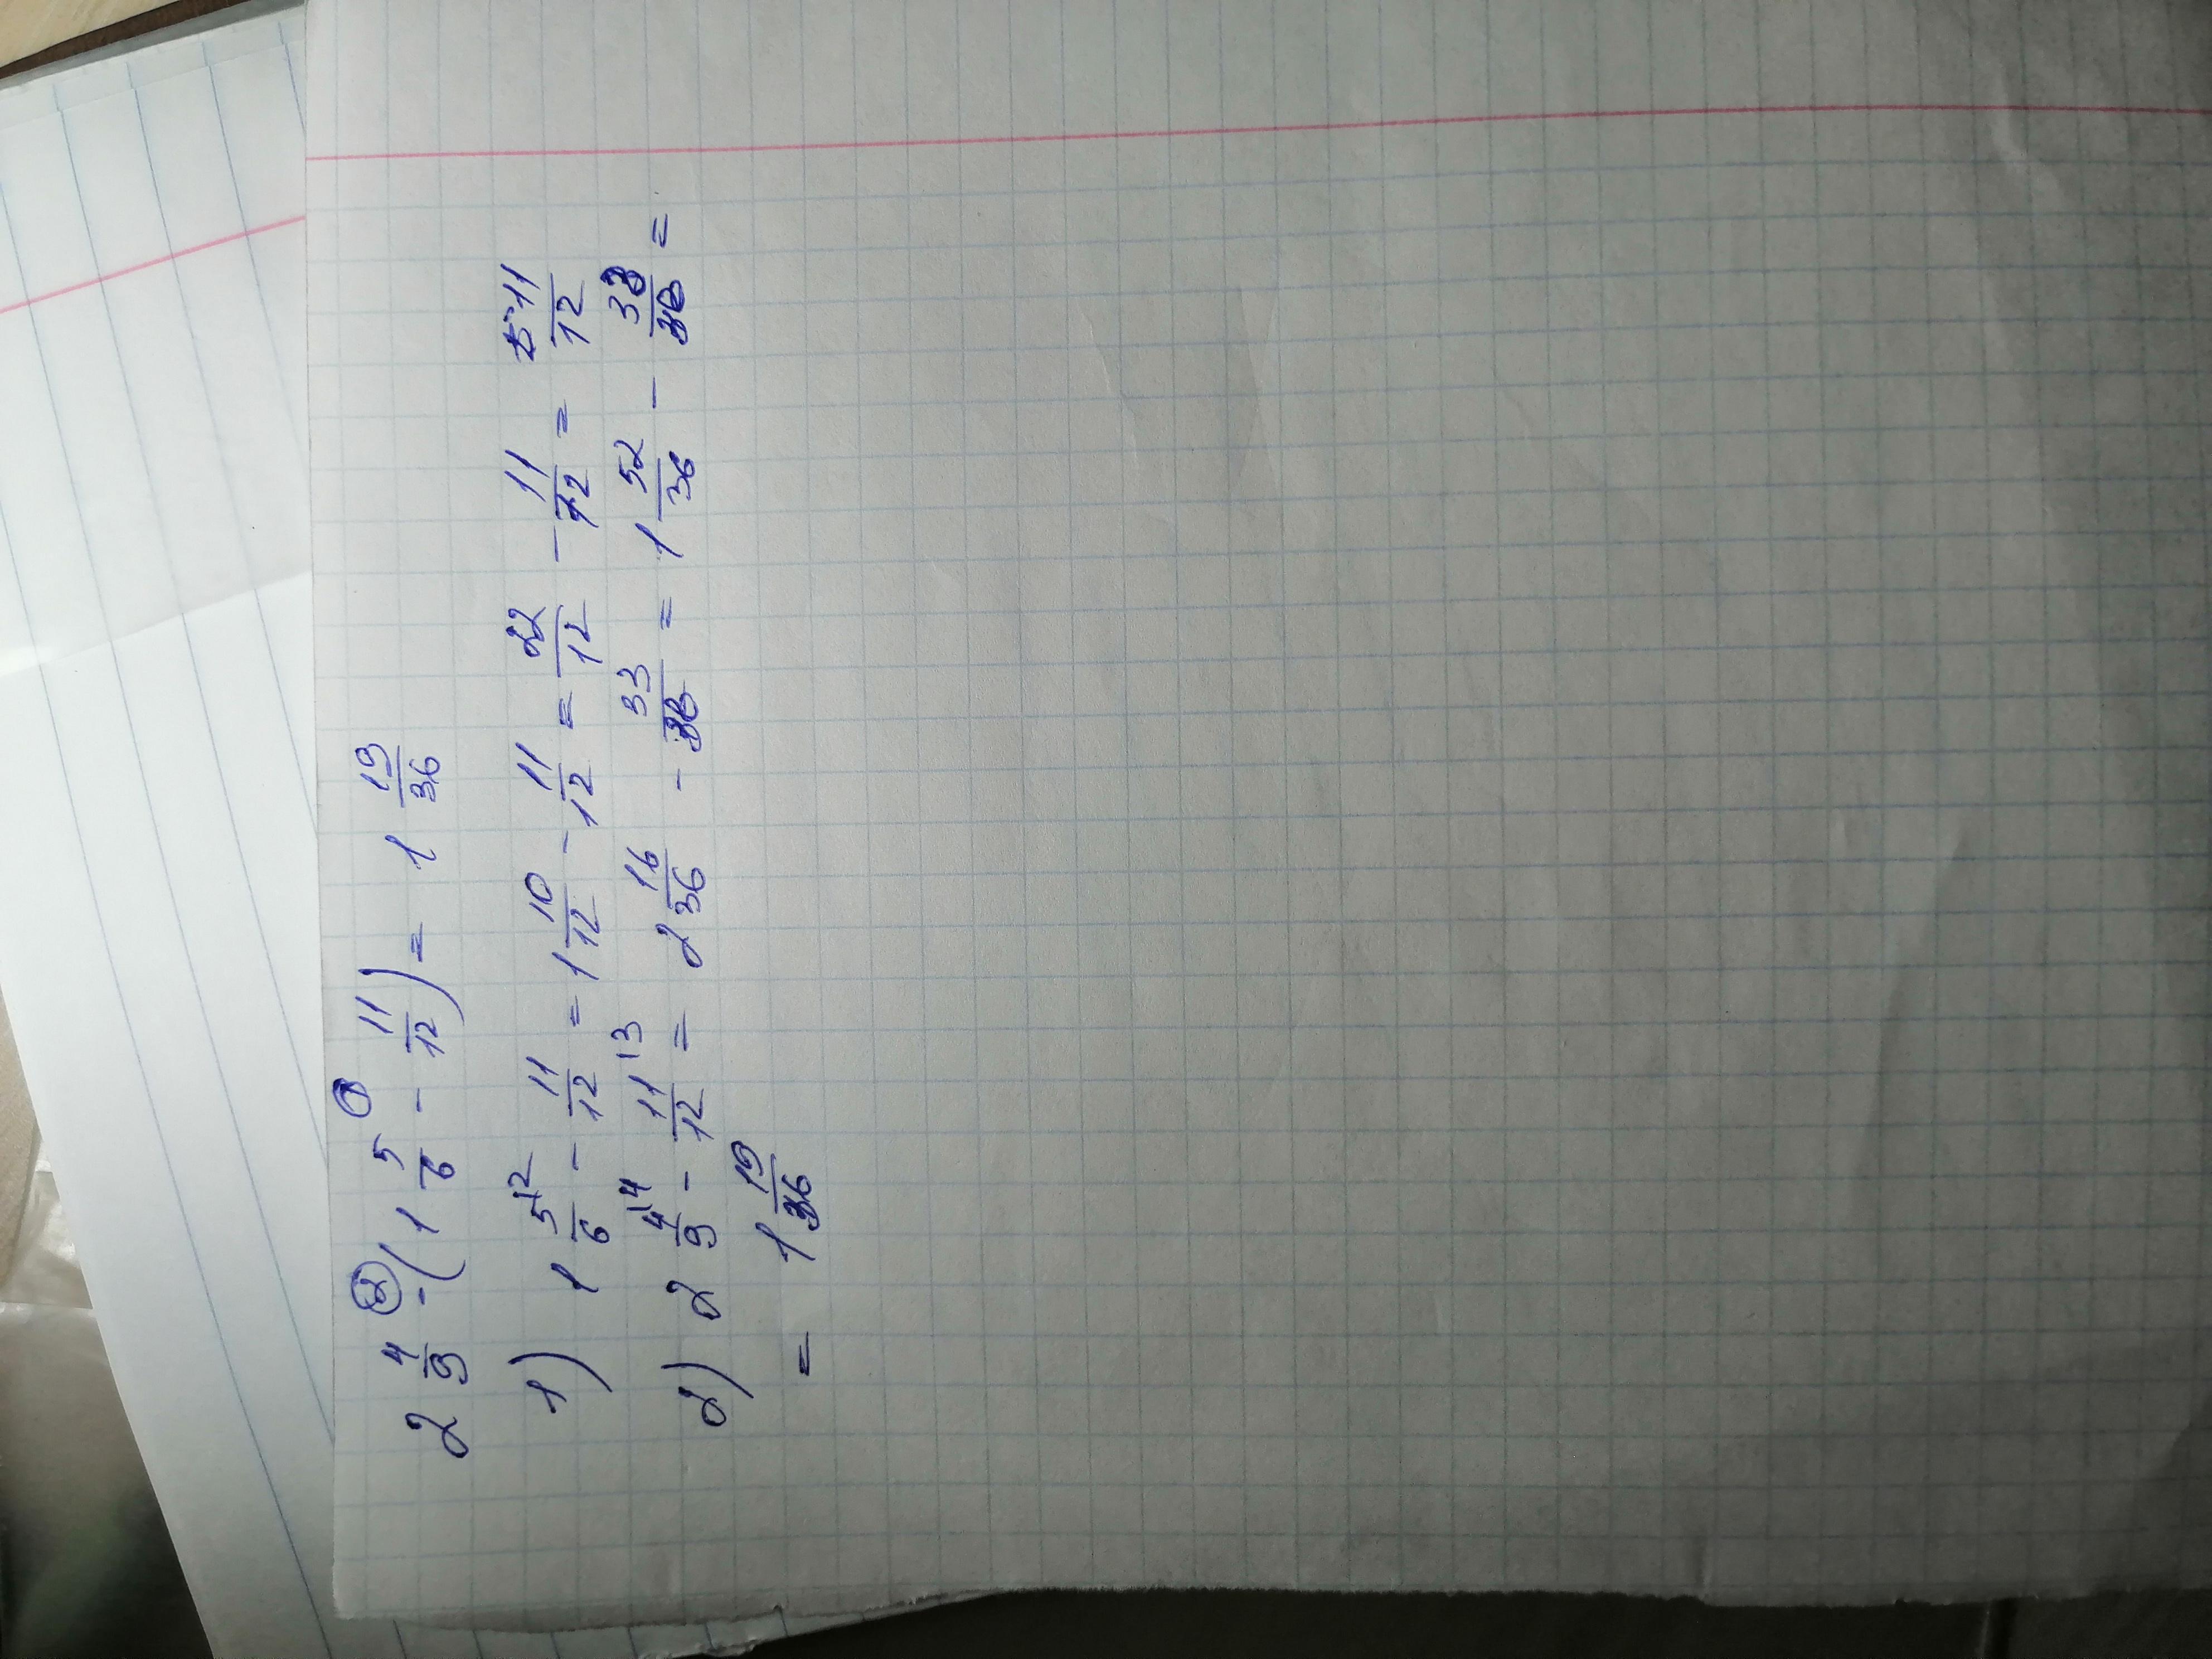 2 4/9 - (1 5/6 - 11/12) = 1 19/36
1) 1 5/6 \2 - 11/12 = 1 10/12 - 11/12 = 22/12 - 11/12 = 11/12
2) 2 4/9 \4 - 11/12 \3 = 2 16/36 - 33/36 = 1 52/36 - 33/36 =
= 1 19/36